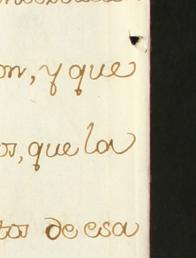 on, y que
os, que la
tas de esa